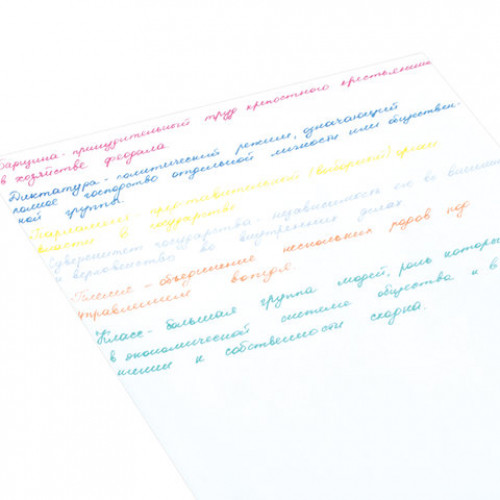 Барщина - принудительный труд крепостного крестьянина
в хозяйстве феодала.
Диктатура - политический режим, означающий
полное господство отдельной личности или обществен-
ной группы.
Парламент - представительный (выборный) орган
власти в государстве
Суверенитет государства - независимость его во внешних
и верховенство во внутренних делах
Племя - объединение нескольких родов под
управлением вождя.
Класс - большая группа людей, роль которых
в экономической системе общества и в
шении к собственности сходна.